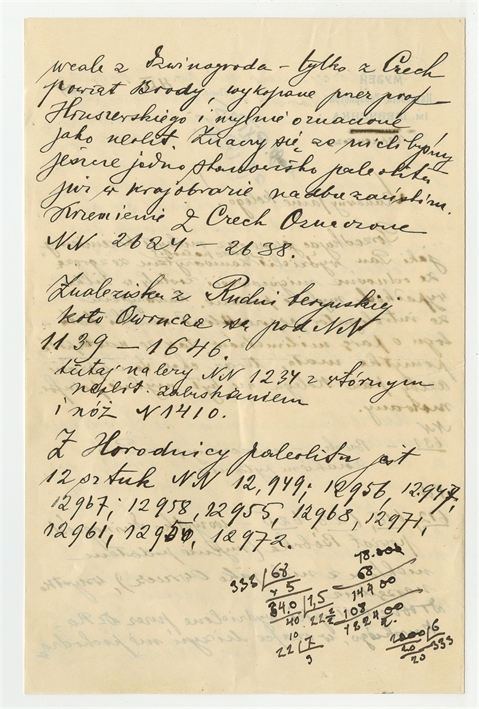 wcale z Dzwinogroda – tylko z Czech
powiat Brody, wykopane przez prof
Hruszewskiego i mylnie oznaczone
jako neolit. Znaczy się, że mielibyśmy
jeszcze jedno stanowisko paleolitu
już w krajobrazie nadbużańskim.
Krzemienie z Czech Oznaczone
NN 2624 – 2638.
Znaleziska z Rudni
koło Owrucza są pod NN
1139 – 1646.
tutaj należy NN 1234 z wtórnym
neolit.
i nóż N 1410.
Z Horodnicy paleolitu jest
12 sztuk NN 12,949; 12956, 12947,
12967; 12958, 12955, 12968, 12971,
12961, 12972.
333 | 68
5
340 | 1,5
40 | 22
10
22 | 7
3
18.000
68
14400
108
122400
2000 | 6
20 333
20